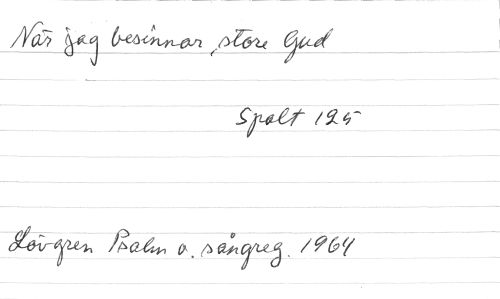 När jag besinnar, store Gud
Spalt 125
Lövgren Psalm o. sångreg. 1964